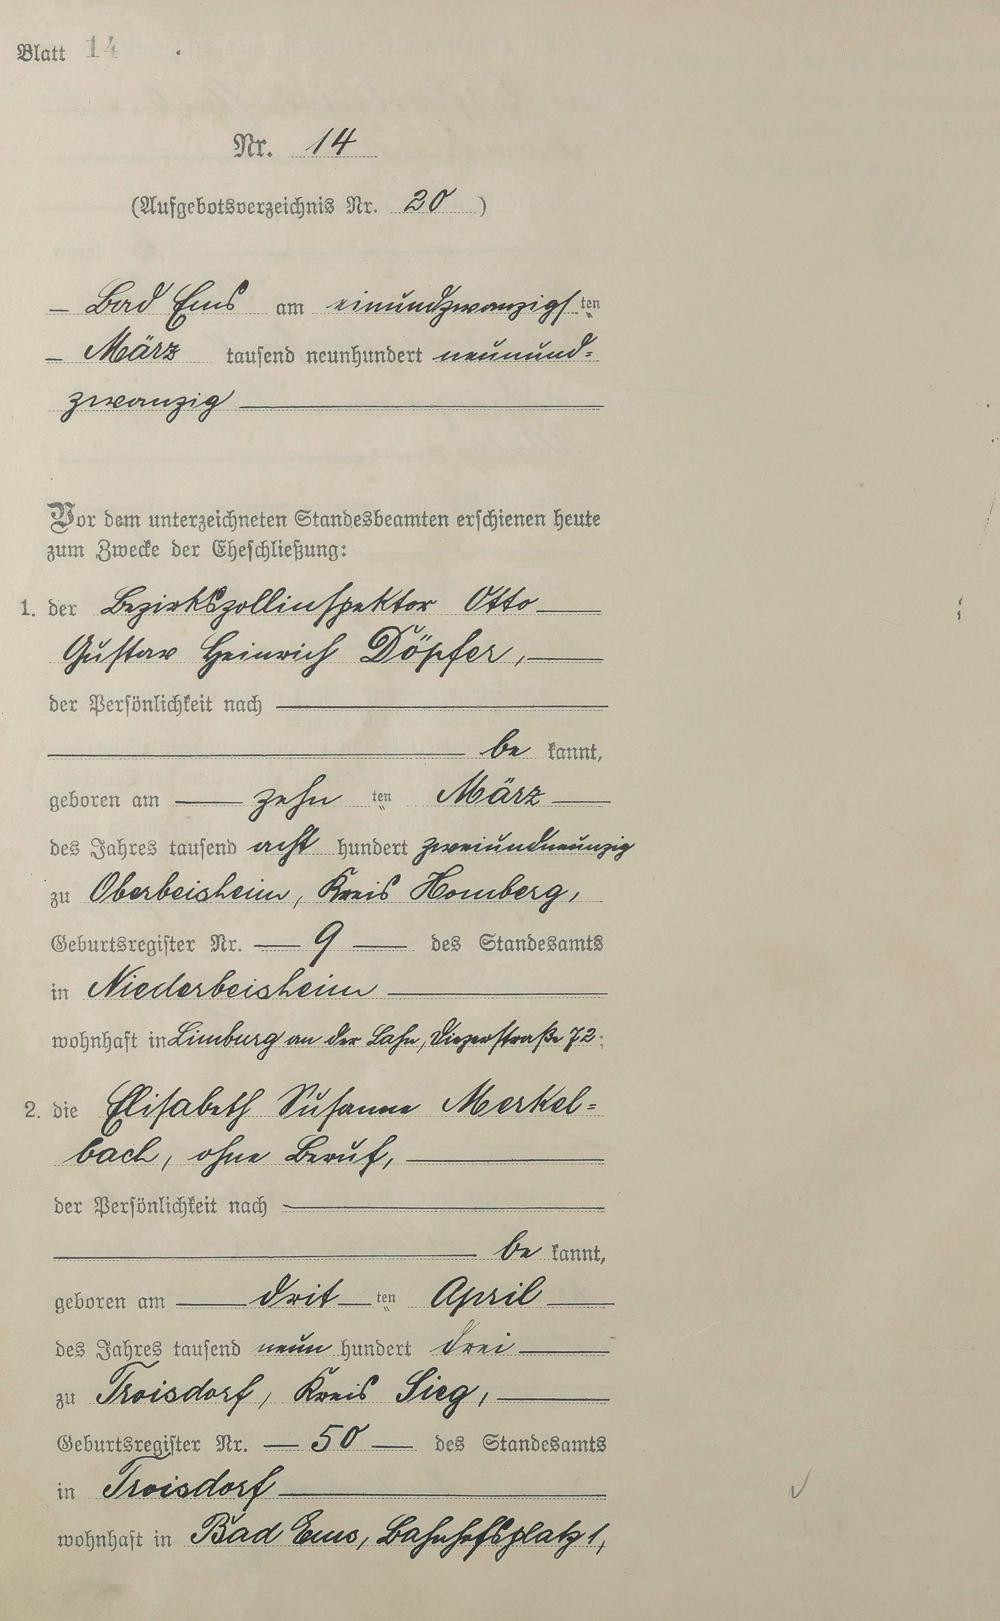 Blatt 14
Nr. 14
(Aufgebotsverzeichnis Nr. 20)
– Bad Ems am einundzwanzigsten
– März tausend neunhundert neunund-
zwanzig
Vor dem unterzeichneten Standesbeamten erschienen heute
zum Zwecke der Eheschließung:
1. der Bezirkszollinspektor Otto
Gustav Heinrich Döpfer,
der Persönlichkeit nach
be kannt,
geboren am zehn ten März
des Jahres tausend acht hundert zweiundneunzig
zu Oberbeisheim, Kreis Homberg,
Geburtsregister Nr. 9 des Standesamts
in Niederbeisheim
wohnhaft in Limburg an der Lahn, Diezerstraße 72;
2. die Elisabeth Susanne Merkel-
bach, ohne Beruf,
der Persönlichkeit nach
be kannt,
geboren am drit ten April
des Jahres tausend neun hundert drei
zu Troisdorf, Kreis Sieg,
Geburtsregister Nr. 50 des Standesamts
in Troisdorf
wohnhaft in Bad Ems, Bahnhofsplatz 1,